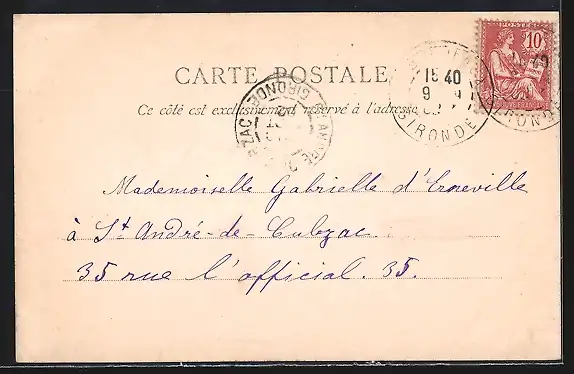 POSTES
10
CARTE POSTALE
Ce côté est exclusivement réservé à l'adresse
15 40
9
GIRONDE
GIRONDE
Mademoiselle Gabrielle d'Croreville
à St André-de-Cubzac
35 rue l'official. 35.